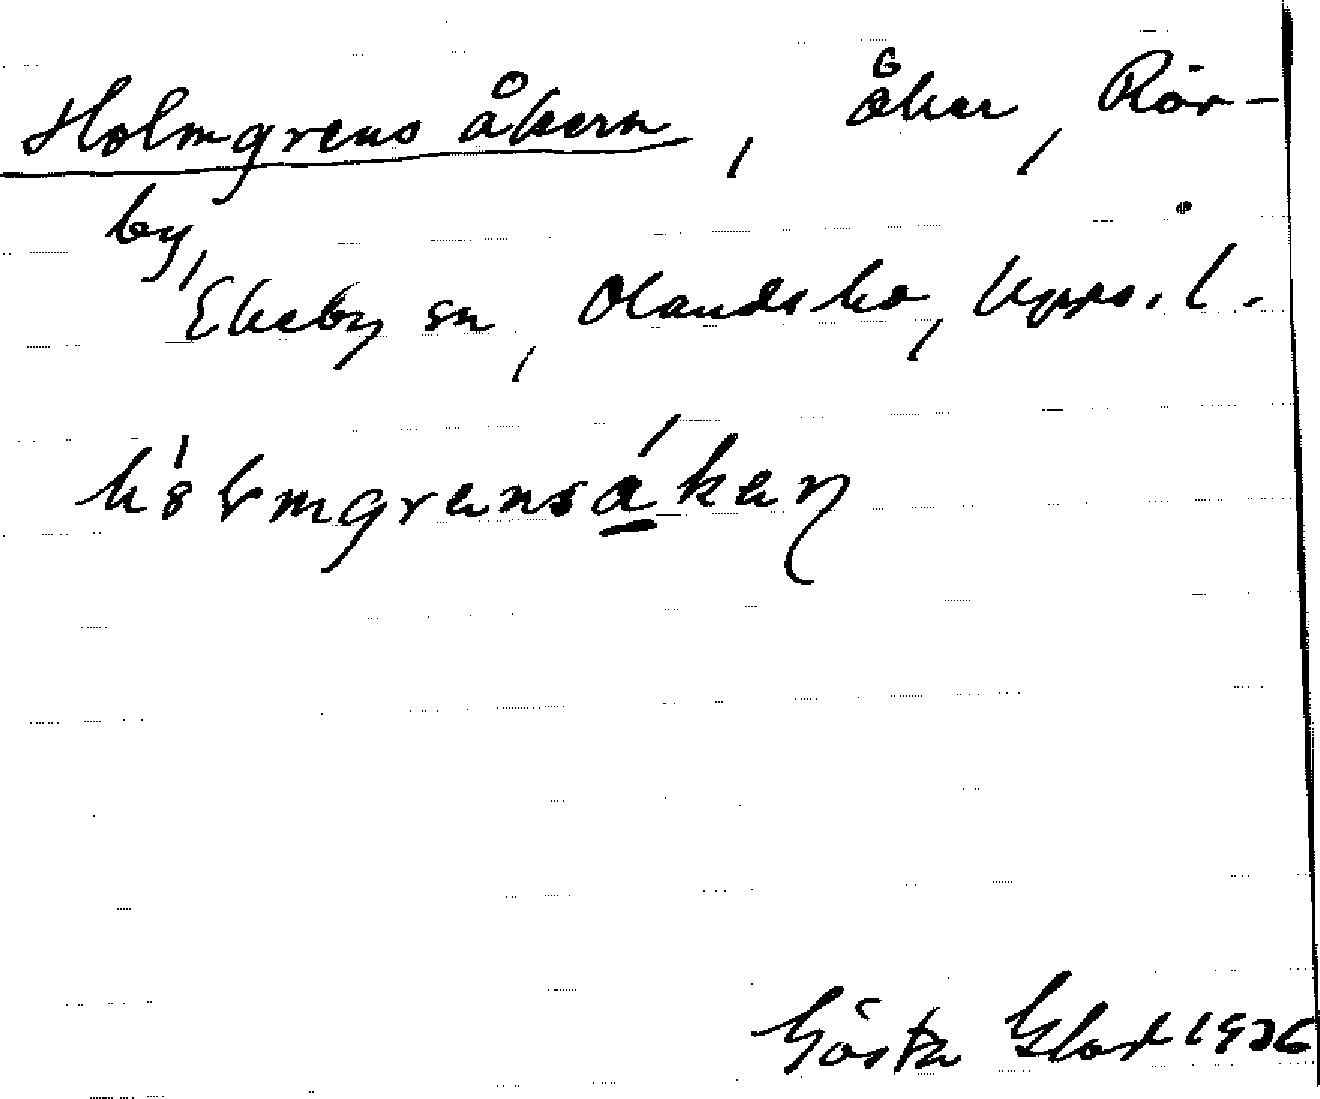 Holmgrens åkern, åker, Rör-
by,
Ekeby sn, Olands hd, Upps. l.
hólmgrensákeƞ
Gösta Glad 1926